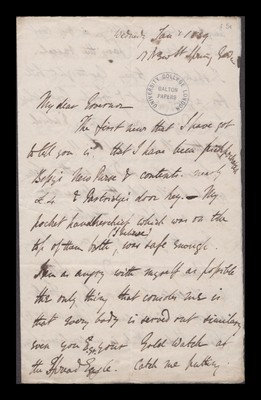 Wednesday Jan 1839
17 New St Spring Gdns
UNIVERSITY COLLEGE LONDON
GALTON
PAPERS
My dear Governor
The first news that I have got
to tell you is that I have been pickpocketed
Bessy's New Purse & contents nearly
£4 & Partridge's door key — My
pocket handkerchief which was on the
(I believe)
top of them both, was safe enough.
I am as angry with myself as possible
the only thing that consoles me is
that every body is served out similarly
even you & your Gold Watch at
the Spread Eagle. Catch me putting